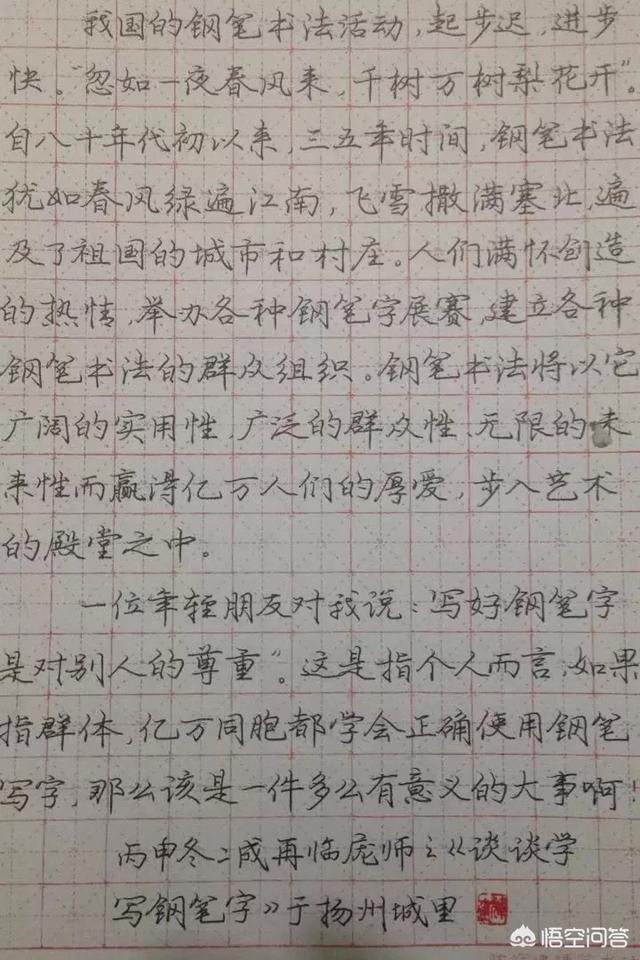 我国的钢笔书法活动，起步迟，进步
快。“忽如一夜春风来，千树万树梨花开”。
自八十年代初以来，三五年时间，钢笔书法
犹如春风绿遍江南，飞雪撒满塞北，遍
及了祖国的城市和村庄。人们满怀创造
的热情，举办各种钢笔字展赛，建立各种
钢笔书法的群众组织。钢笔书法将以它
广阔的实用性，广泛的群众性，无限的未
来性而赢得亿万人们的厚爱，步入艺术
的殿堂之中。
一位年轻朋友对我说：写好钢笔字
是对别人的尊重”。这是指个人而言，如果
指群体，亿万同胞都学会正确使用钢笔
写字，那么该是一件多么有意义的大事啊！
丙申冬二成再临庞师之《谈谈学
写钢笔字》于扬州城里
悟空问答